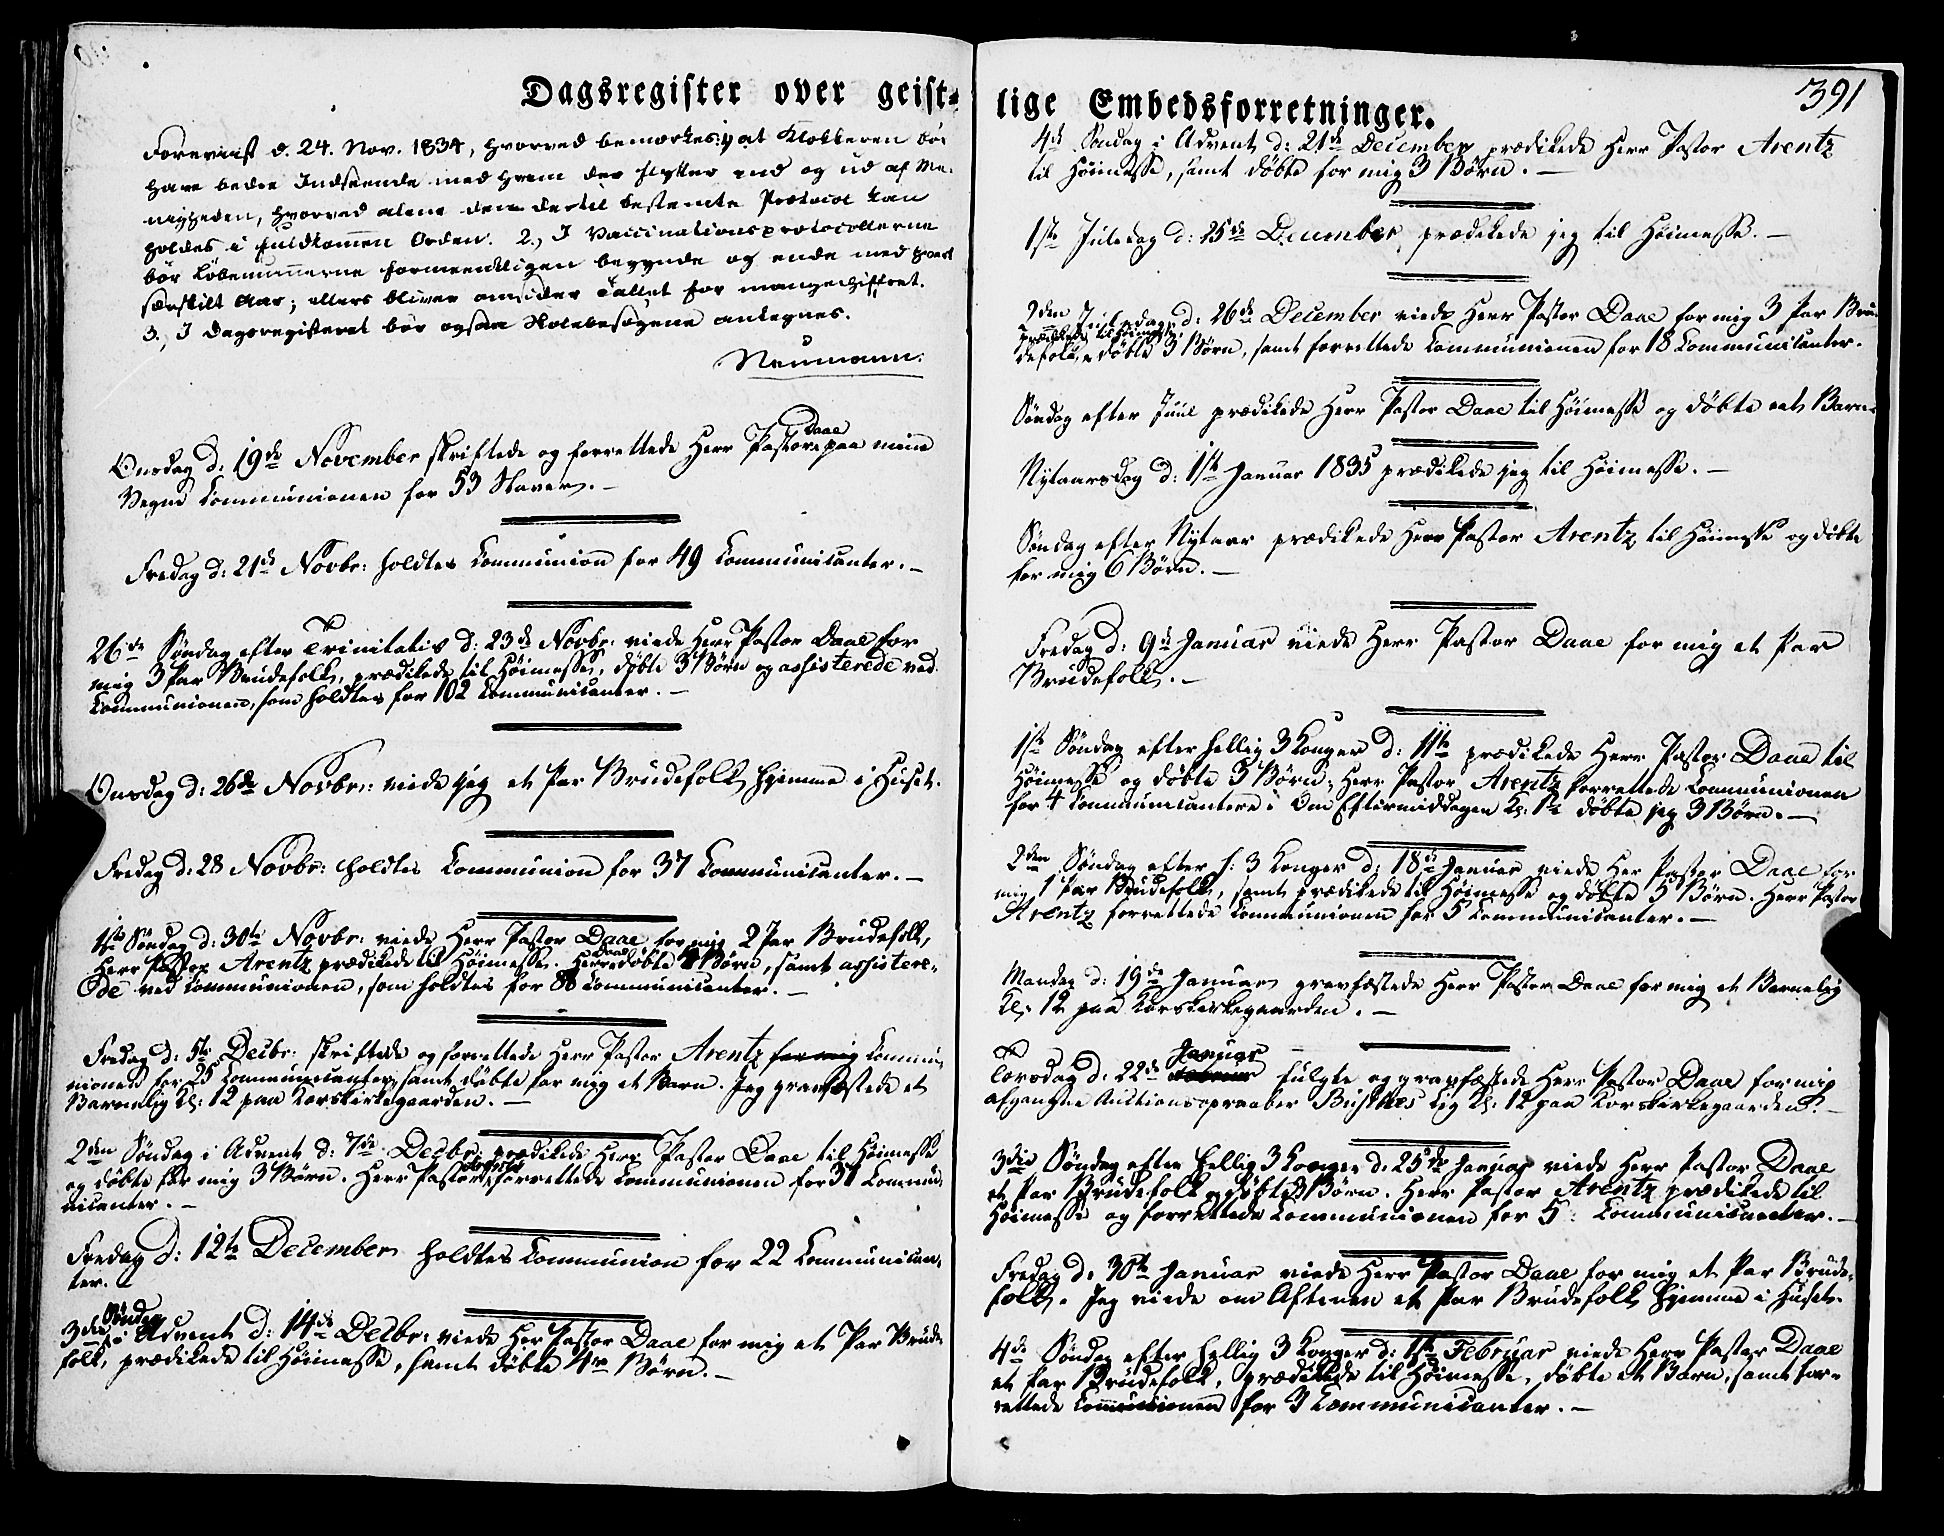 Dagsregister over geist-
Foreviist d. 24. Nov. 1834, hvorved bemærkes: 1) at Klokkeren bør
have bedre Indseende med hvem der flytter ind og ud af Me-
nigheden, hvorved alene den dertil bestemte Protocol kan
holdes i fuldkommen Orden. 2., I Vaccinationsprotocollerne
bør Löbenummerne formeentligen begynde og ende med hvert
særskilt Aar; ellers bliver omsider Tallet for mangeziffret.
3., I Dagsregisteret bør ogsaa Skolebesøgene antegnes.
Neumann.
Daae
Onsdag d: 19de November skriftede og forrettede Herr Pastor paa mine
Vegne Communionen for 53 Slaver. –
Fredag d: 21de Novbr: holdtes Communion for 49 Communicanter. –
26de Søndag efter Trinitatis d: 23de Novbr: viede Herr Pastor Daae for
mig 3 Par Brudefolk, prædikede til Høimesse, døbte 3 Børn og assisterede ved
Communionen, som holdtes for 102 Communicanter. –
Onsdag d: 26de Novbr: viede jeg et Par Brudefolk hjemme i Huset.
Fredag d: 28 Novbr: holdtes Communion for 37 Communicanter. –
1ste Søndag d: 30te Novbr: viede Herr Pastor Daae for mig 2 Par Brudefolk,
Herr Pastor Arentz prædikede til Høimesse. Herr Daae døbte Børn, samt assistere-
de ved Communionen, som holdtes for 88 Communicanter. –
Fredag d: 5te Decbr: skriftede og forrettede Herr Pastor Arentz for mig Commu-
nionen for 25 Communicanter, samt døbte for mig et Barn. Jeg gravfæstede et
Barnelig Kl: 12 paa Korskirkegaarden. –
2den Søndag i Advent d: 7de Decbr: prædikede Herr Pastor Daae til Høimesse
og døbte for mig 3 Børn. Herr Pastor Arentz forrettede Communionen for 37 Commu-
nicanter. –
Fredag d: 12te December holdtes Communion for 22 Communican-
ter. –
3die Søndag i Advent d: 14de Decbr: viede Herr Pastor Daae for mig et Par Brude-
folk, prædikede til Høimesse, samt døbte 4re Børn. –
391
lige Embedsforretninger.
4de Søndag i Advent d: 21de December prædikede Herr Pastor Arentz
til Høimesse, samt døbte for mig 3 Børn. –
1ste Juledag d: 25de December prædikede jeg til Høimesse. –
2den Juledag d: 26de December viede Herr Pastor Daae for mig 3 Par Bru-
prædikede til Høimesse
defolk, døbte 3 Børn, samt forrettede Communionen for 18 Communicanter.
Søndag efter Juul prædikede Herr Pastor Daae til Høimesse og døbte eet Barn.
Nytaarsdag d: 1ste Januar 1835 prædikede jeg til Høimesse. –
Søndag efter Nytaar prædikede Herr Pastor Arentz til Høimesse og døbte
for mig 6 Børn. –
Fredag d: 9de Januar viede Herr Pastor Daae for mig et Par
Brudefolk. –
1ste Søndag efter hellig 3 Konger d: 11te prædikede Herr Pastor Daae til
Høimesse og døbte 3 Børn; Herr Pastor Arentz forrettede Communionen
for 4 Communicantere. Om Eftermiddagen Kl: 1½ døbte jeg 3 Børn. –
2den Søndag efter h: 3 Konger d: 18de Januar viede Her Pastor Daae for
mig 1 Par Brudefolk, samt prædikede til Høimesse og døbte 5 Børn. Herr Pastor
Arentz forrettede Communionen for 5 Communicanter. –
Mandag d: 19de Januar gravfæstede Herr Pastor Daae for mig et Barnelig
Kl: 12 paa Korskirkegaarden. –
Januar
Torsdag d: 22de fulgte og gravfæstede Herr Pastor Daae for mig
afgangne Auctionsopraaber Lig Kl: 12 paa Korskirkegaarden. –
3die Søndag efter hellig 3 Konger d: 25de Januar viede Herr Pastor Daae
et Par Brudefolk og døbte 3 Børn. Herr Pastor Arentz prædikede til
Høimesse og forrettede Communionen for 5 Communicanter. –
Fredag d: 30te Januar viede Herr Pastor Daae for mig et Par Brude-
folk. Jeg viede om Aftenen et Par Brudefolk hjemme i Huset.
4de Søndag efter hellig 3 Konger d: 1ste Februar viede Herr Pastor Daae
et Par Brudefolk, prædikede til Høimesse, døbte et Barn, samt for-
rettede Communionen for 3 Communicanter. –